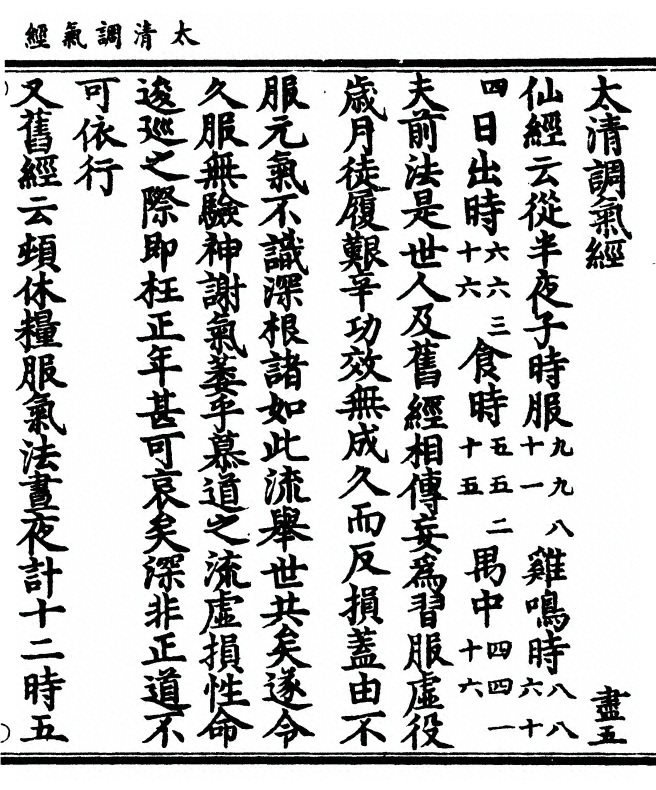 太清調氣經
太清調氣經　盡五
仙經云從半夜子時服九九八十一雞鳴時八八六十
四日出時六六三十六食時五五二十五禺中四四一十六
夫前法是世人及舊經相傳妄爲習服虛役
歲月徒履艱辛功效無成久而反損蓋由不
服元氣不識深根諸如此流舉世共矣遂令
久服無驗神謝氣萎乎慕道之流虛損性命
逡巡之際即枉正年甚可哀矣深非正道不
可依行
又舊經云頓休糧服氣法晝夜計十二時五